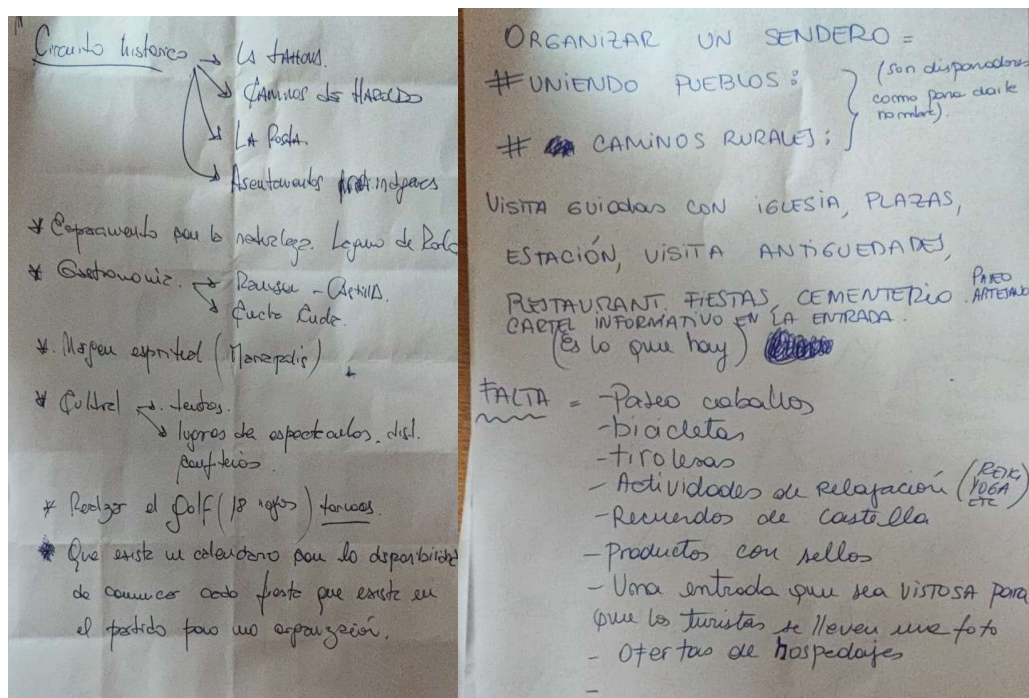 Circuito historico → La tahona.
→ Caminos de Haroldo
→ La Posta.
→ Asentamientos indigenas
* la naturaleza. Laguna de
* Gastronomia. → Ranser - Castilla.
→
* espiritual (Mariapolis)
* Cultural → teatros.
→ lugares de espectaculos, dist.
* el Golf (18 )
* Que existe un calendario para la disponibilidad
de conocer cada fiesta que existe en
el partido para una organización.
ORGANIZAR UN SENDERO =
# UNIENDO PUEBLOS: (son disparadores
como para darle
nombre).
# CAMINOS RURALES:
VISITA GUIADAS CON IGLESIA, PLAZAS,
ESTACIÓN, VISITA ANTIGUEDADES,
RESTAURANT. FIESTAS, CEMENTERIO. PASEO
ARTESANO
CARTEL INFORMATIVO EN LA ENTRADA.
(Es lo que hay)
FALTA = - Paseo caballos
- bicicletas
- tirolesas
- Actividades de Relajación (REIKI
YOGA
ETC)
- Recuerdos de castella
- Productos con sellos
- Una entrada que sea VISTOSA para
que los turistas se lleven una foto
- Ofertas de hospedajes
-